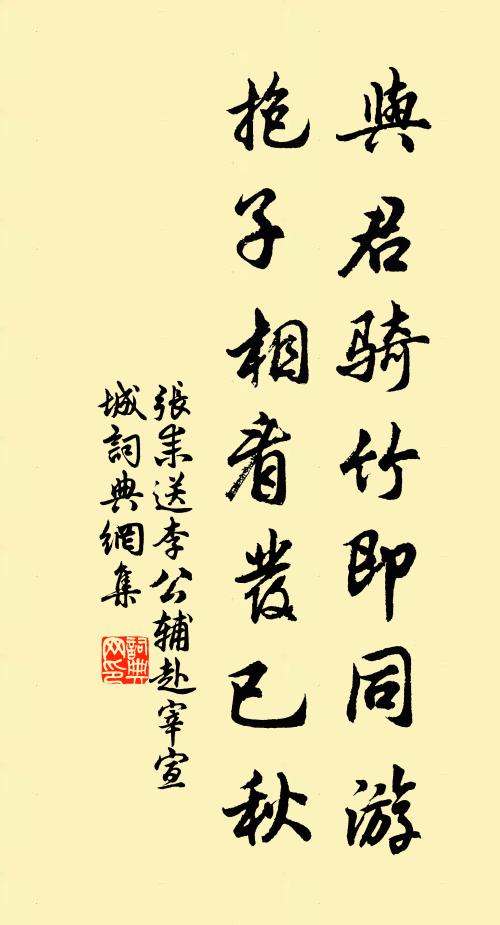 與君騎竹即同游
抱子相看發已秋
張耒送李公輔赴宰宣
城詞典網集
詞典
网印